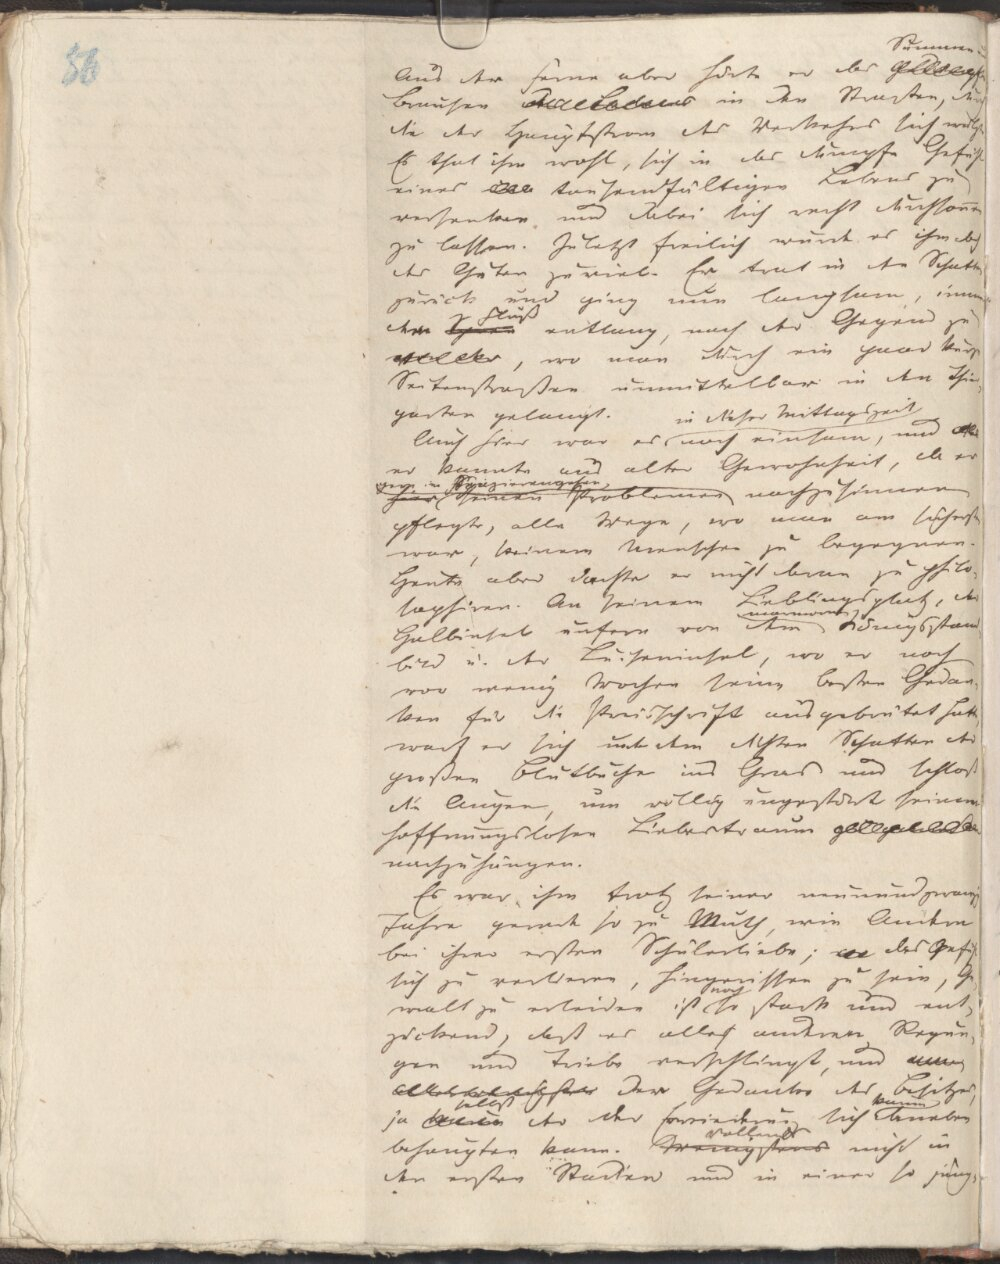 56
Summen u
Aus der Ferne aber hörte er das
Brausen in den Straßen, durch
die der Hauptstrom des Verkehrs sich wälzt.
Es that ihm wohl, sich in das dumpfe Gefühl
eines tausendfältigen Lebens zu
versenken und dabei sich recht durchsonnen
zu lassen. Zuletzt freilich wurde es ihm doch
des Guten zuviel. Er trat in den Schatten
zurück und ging nun langsam, immer
Fluß
den entlang, nach der Gegend zu
, wo man durch ein paar kurze
Seitenstraßen unmittelbar in den Thier-
garten gelangt.
in dieser Mittagszeit
Auch hier war es noch einsam, und
er kannte aus alter Gewohnheit, da er
im Spazierengehen,
hier seinen Problemen nachzusinnen
pflegte, alle Wege, wo man am sichersten
war, keinem Menschen zu begegnen.
Heute aber dachte er nicht daran zu philo-
sophiren. An seinem Lieblingsplatz, der
marmornen
Halbinsel unfern von dem Königsstand-
bild u. der Luiseninsel, wo er noch
vor wenig Wochen seine besten Gedan-
ken für die Preisschrift ausgebrütet hatte,
warf er sich unter dem dichten Schatten der
großen Blutbuche ins Gras und schloß
die Augen, um völlig ungestört seinem
hoffnungslosen Liebestraum
nachzuhängen.
Es war ihm trotz seiner neunundzwanzig
Jahre gerade so zu Muth, wie Andern
bei ihrer ersten Schülerliebe; das Gefühl
sich zu verlieren, hingerissen zu sein, Ge-
noch
walt zu erleiden ist so stark und ent-
zückend, daß es alle anderen Regun-
gen und Triebe verschlingt, und
der Gedanke des Besitzes,
selbst kaum
ja der der Erwiederung sich daneben
vollends
behaupten kann. Wenigstens nicht in
den ersten Stadien und in einer so jung-